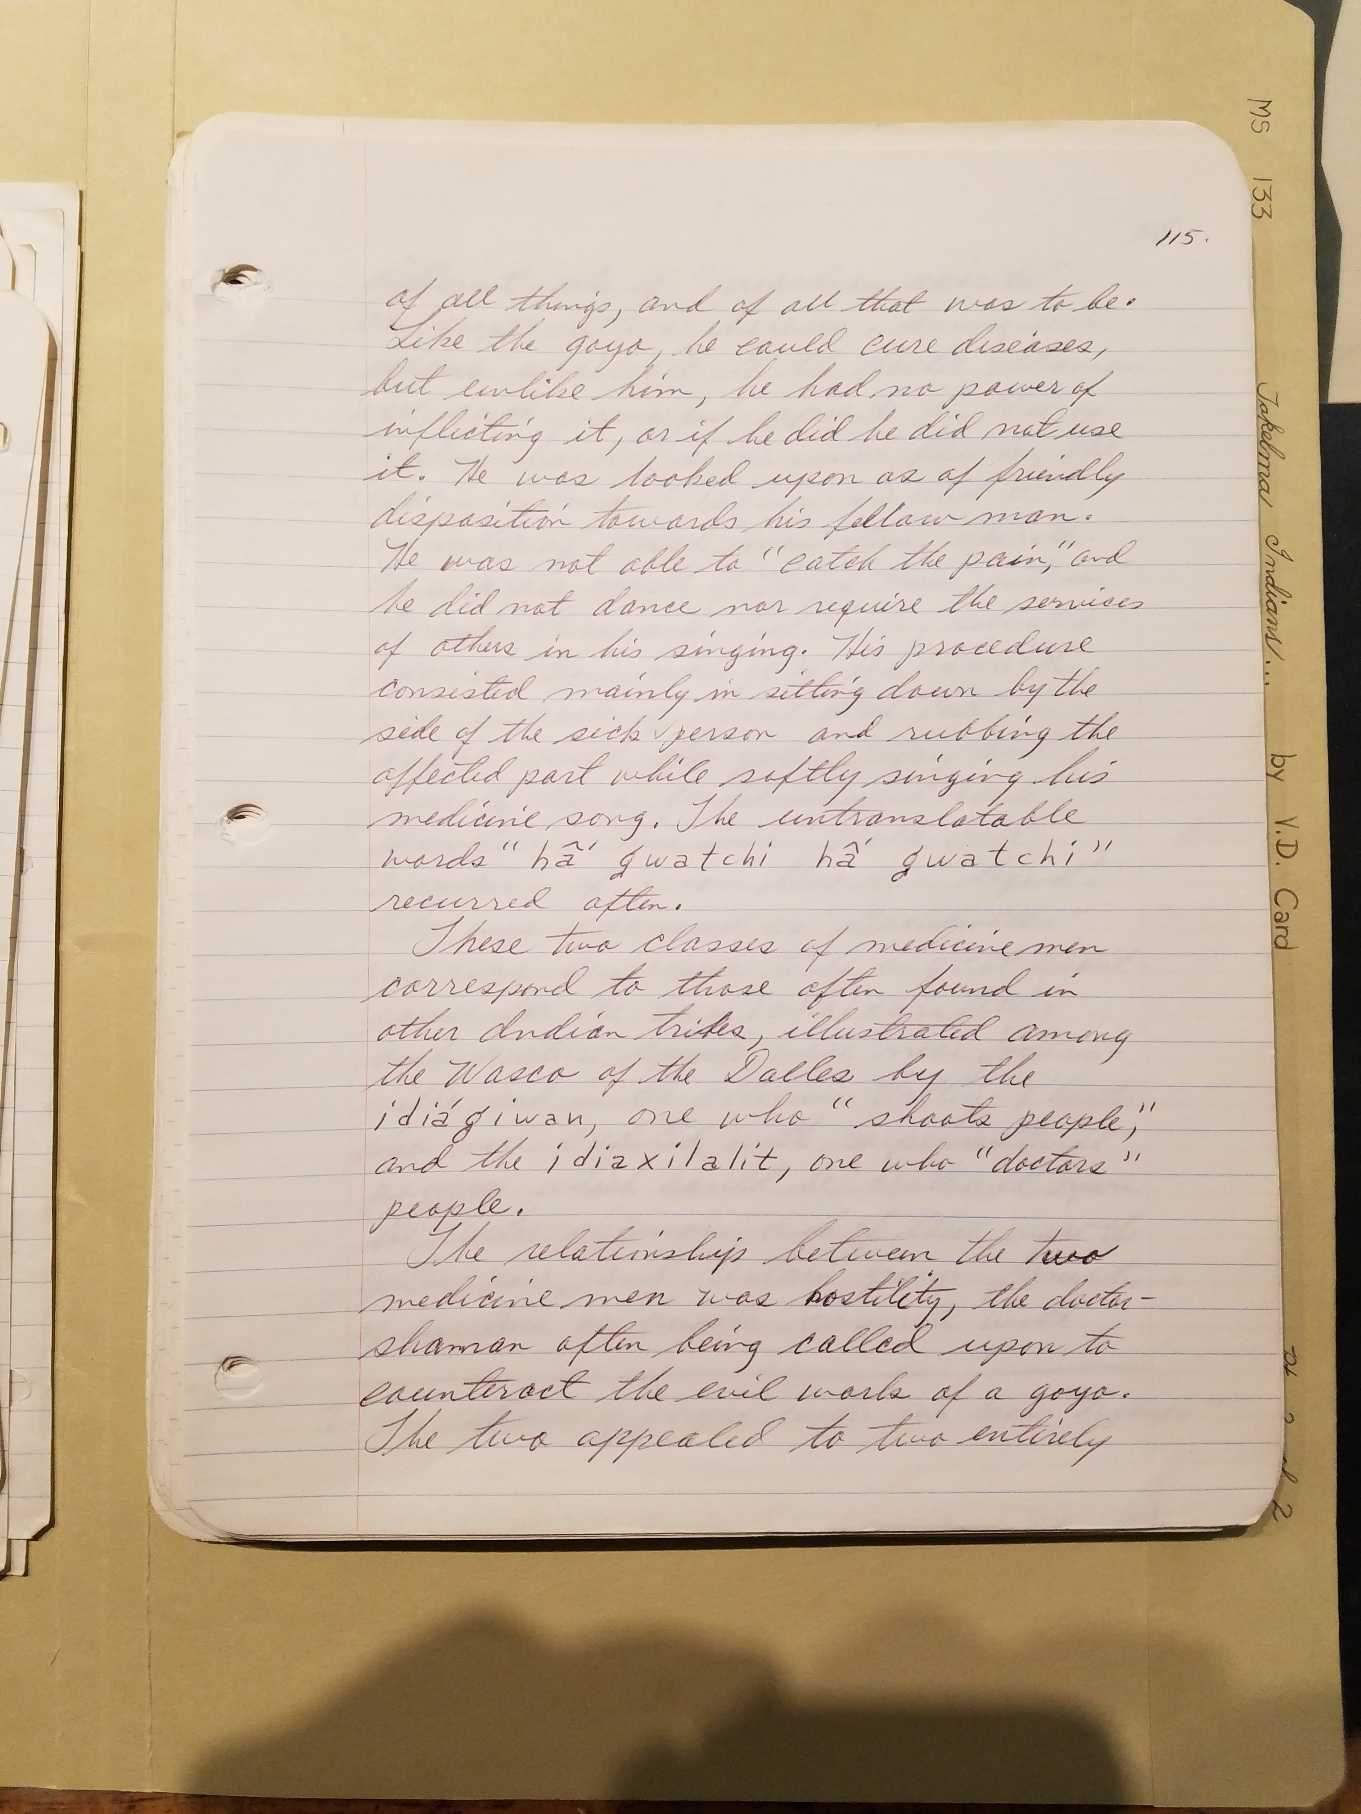 115.
of all things, and of all that was to be.
Like the goyo, he could cure diseases,
but unlike him, he had no power of
inflicting it, or if he did he did not use
it. He was looked upon as of friendly
disposition towards his fellow man.
He was not able to "catch the pain," and
he did not dance nor require the services
of others in his singing. His procedure
consisted mainly in sitting down by the
side of the sick person and rubbing the
affected part while softly singing his
medicine song. The untranslatable
words "hấ gwatchi hấ gwatchi"
recurred often.
These two classes of medicine men
correspond to those often found in
other Indian tribes, illustrated among
the Wasco of the Dalles by the
idiágiwan, one who "shoots people,"
and the idiaxilalit, one who "doctors"
people.
The relationship between the two
medicine men was hostility, the doctor-
shaman often being called upon to
counteract the evil work of a goyo.
The two appealed to two entirely
MS 133 Takelma Indians... by V.D. Card 2